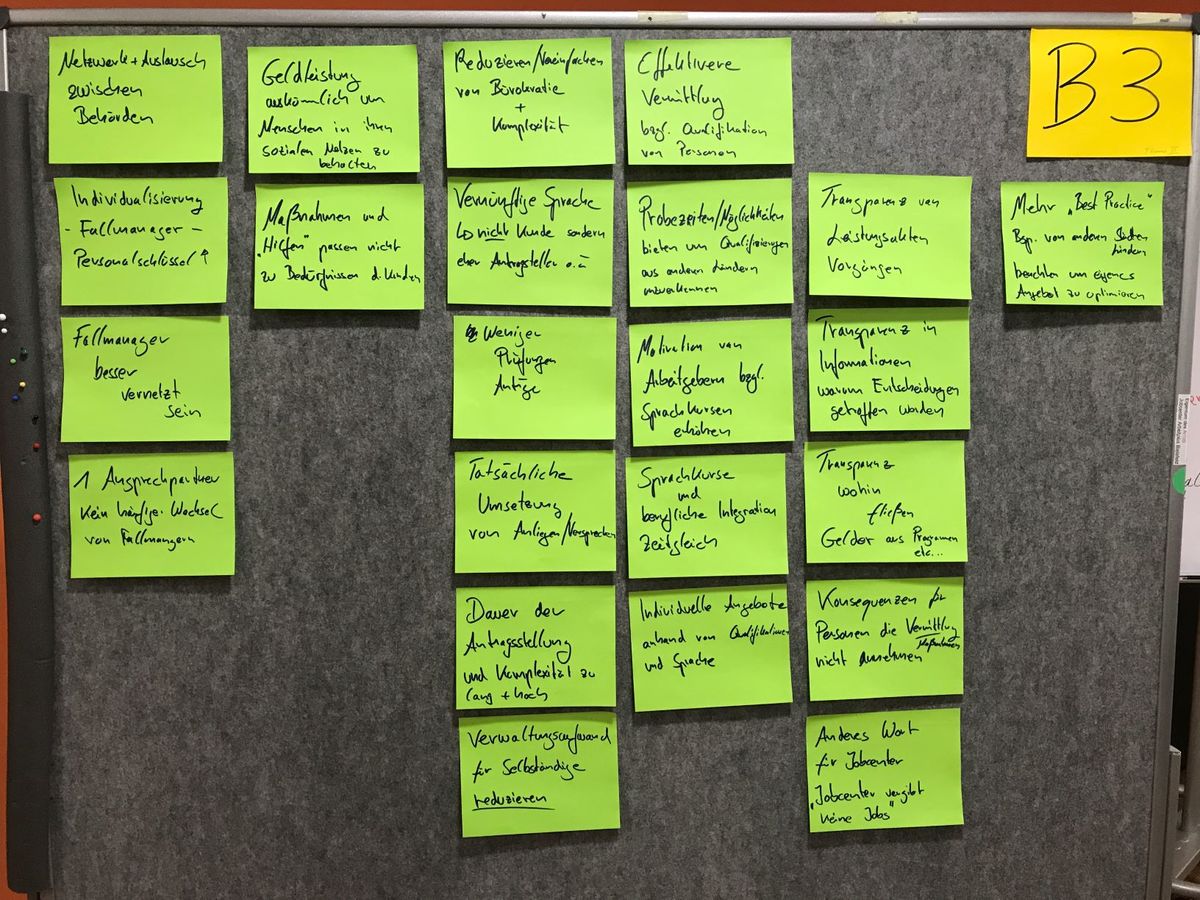 Netzwerk + Austausch
zwischen
Behörden
Individualisierung
- Fallmanager -
Personalschlüssel ↑
Fallmanager
besser
vernetzt
sein
1 Ansprechpartner
Kein häufige. Wechsel
von Fallmangern
Geldleistung
auskömmlich um
Menschen in ihren
sozialen Netzen zu
behalten
Maßnahmen und
"Hilfen" passen nicht
zu Bedürfnissen d. Kunden
Reduzieren/Vereinfachen
von Bürokratie
+
Komplexität
Vernünftige Sprache
↳ nicht Kunde sondern
eher Antragsteller o.ä
Weniger
Prüfungen
Anträge
Tatsächliche
Umsetzung
von Anliegen/Versprechen
Dauer der
Antragsstellung
und Komplexität zu
lang + hoch
Verwaltungsaufwand
für Selbständige
reduzieren
Effektivere
Vermittlung
bzgl. Qualifikation
von Personen
Probezeiten/Möglichkeiten
bieten um Qualifizierungen
aus anderen Ländern
anzuerkennen
Motivation von
Arbeitgebern bzgl.
Sprachkursen
erhöhen
Sprachkurse
und
berufliche Integration
zeitgleich
Individuelle Angebote
anhand von Qualifikationen
und Sprache
Transparenz von
Leistungsakten
Vorgängen
Transparenz in
Informationen
warum Entscheidungen
getroffen worden
Transparenz
wohin
fließen
Gelder aus Programmen
etc...
Konsequenzen für
Personen die Vermittlung
Maßnahmen
nicht annehmen
Anderes Wort
für Jobcenter
"Jobcenter vergibt
keine Jobs"
B3
Mehr "Best Practice"
Bsp. von anderen Städten
Ländern
beachten um eigenes
Angebot zu optimieren